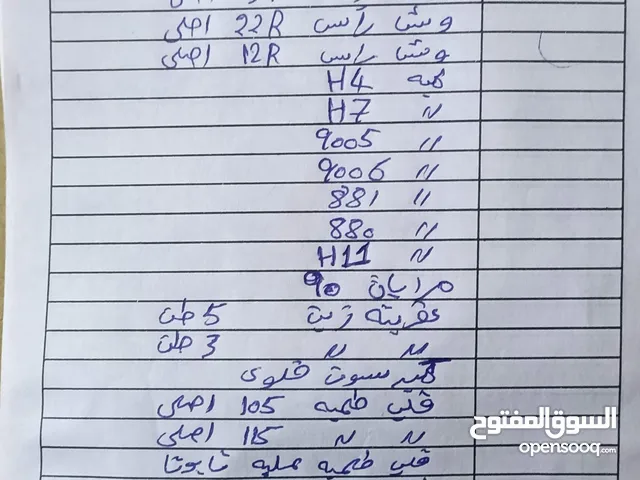 وش راس 22R اصلي
وش راس 12R اصلي
لمبه H4
// H7
// 9005
// 9006
// 881
// 880
// H11
مرايات 90
عفريته زيت 5 طن
// // 3 طن
قلب طلمبه 105 اصلي
// // 115 اصلي
قلب طلمبه مليه تايوتا
السوق المفتوح
opensooq.com